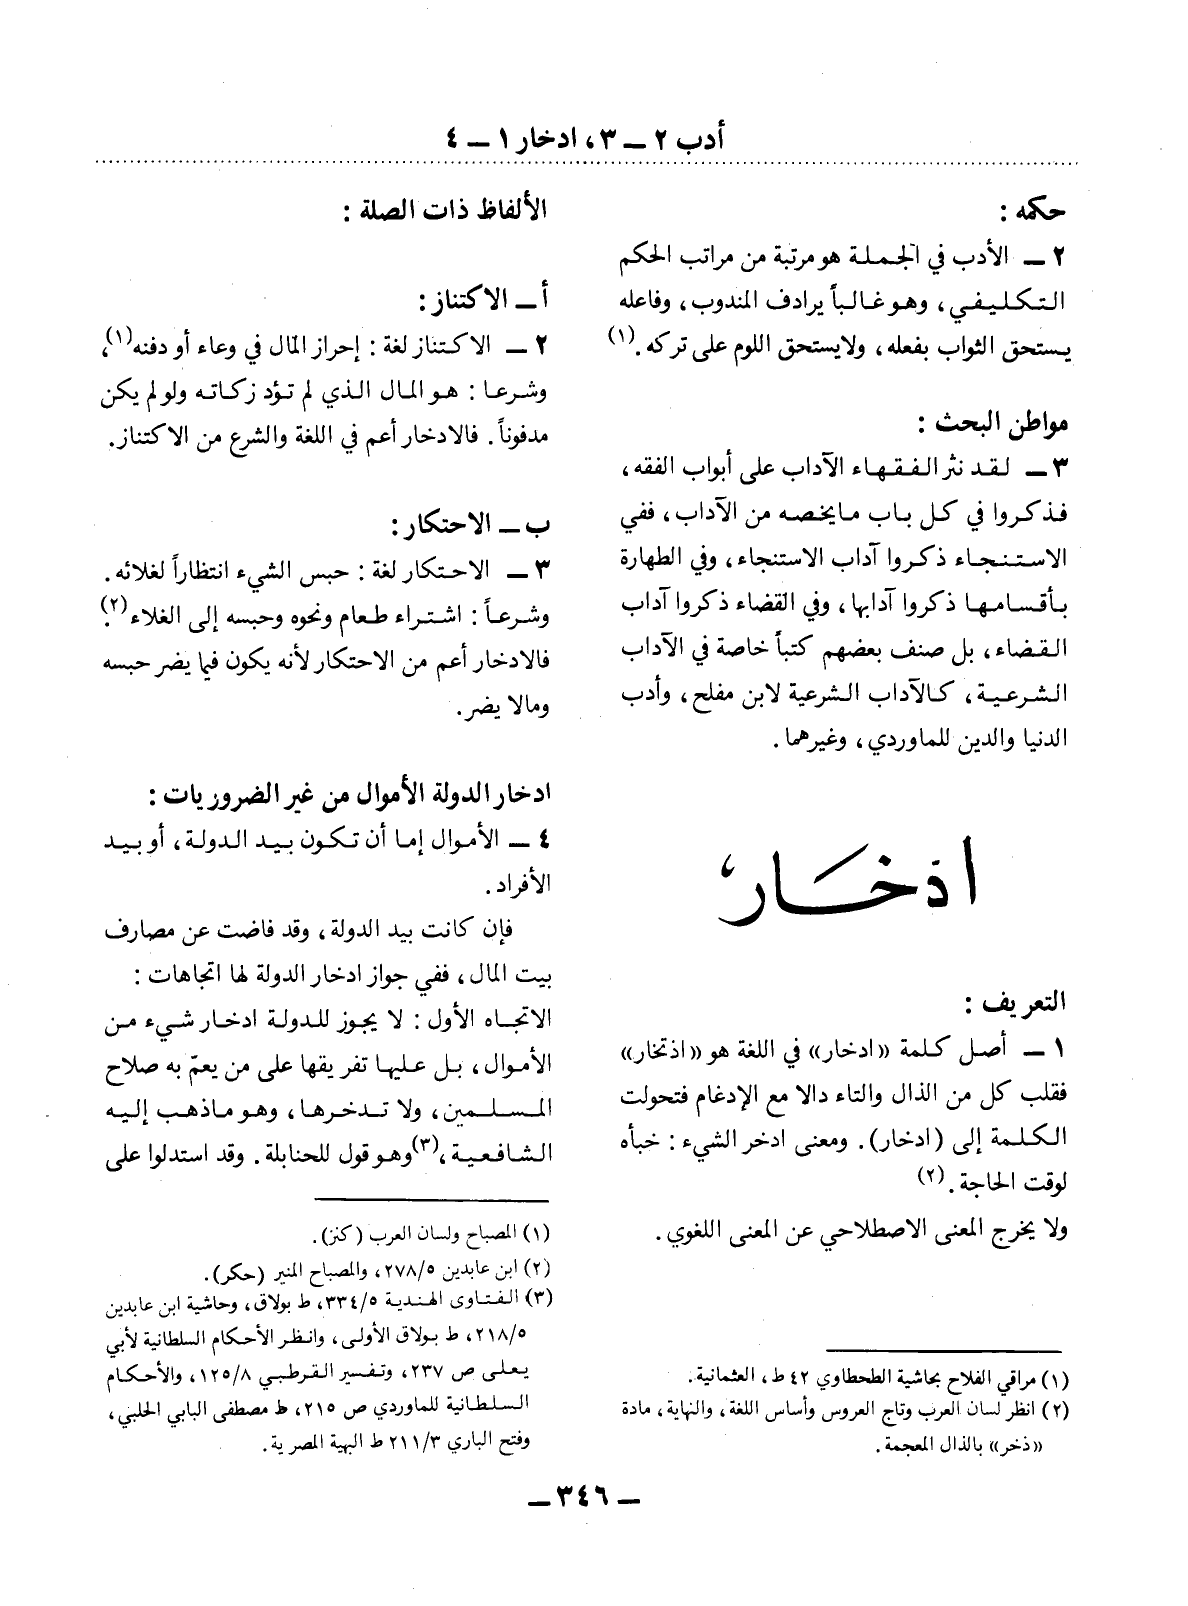 أدب ٢ ــ ٣، ادخار ١ ــ ٤
حكمه :
٢ ــ الأدب في الجملة هو مرتبة من مراتب الحكم
التكليفي، وهو غالباً يرادف المندوب، وفاعله
يستحق الثواب بفعله، ولايستحق اللوم على تركه. (١)
مواطن البحث :
٣ ــ لقد نثر الفقهاء الآداب على أبواب الفقه،
فذكروا في كل باب مايخصه من الآداب، ففي
الاستنجاء ذكروا آداب الاستنجاء، وفي الطهارة
بأقسامها ذكروا آدابها، وفي القضاء ذكروا آداب
القضاء، بل صنف بعضهم كتباً خاصة في الآداب
الشرعية، كالآداب الشرعية لابن مفلح، وأدب
الدنيا والدين للماوردي، وغيرهما.
ادّخار
التعريف :
١ ــ أصل كلمة «ادخار» في اللغة هو «اذتخار»
فقلب كل من الذال والتاء دالا مع الإدغام فتحولت
الكلمة إلى (ادخار). ومعنى ادخر الشيء : خبأه
لوقت الحاجة. (٢)
ولا يخرج المعنى الاصطلاحي عن المعنى اللغوي.
(١) مراقي الفلاح بحاشية الطحطاوي ٤٢ ط، العثمانية.
(٢) انظر لسان العرب وتاج العروس وأساس اللغة، والنهاية، مادة
«ذخر» بالذال المعجمة.
الألفاظ ذات الصلة :
أ ــ الاكتناز :
٢ ــ الاكتناز لغة : إحراز المال في وعاء أو دفنه(١)،
وشرعا : هو المال الذي لم تؤد زكاته ولو لم يكن
مدفوناً. فالادخار أعم في اللغة والشرع من الاكتناز.
ب ــ الاحتكار :
٣ ــ الاحتكار لغة : حبس الشيء انتظاراً لغلائه.
وشرعاً : اشتراء طعام ونحوه وحبسه إلى الغلاء(٢).
فالادخار أعم من الاحتكار لأنه يكون فيما يضر حبسه
ومالا يضر.
ادخار الدولة الأموال من غير الضروريات :
٤ ــ الأموال إما أن تكون بيد الدولة، أو بيد
الأفراد.
فإن كانت بيد الدولة، وقد فاضت عن مصارف
بيت المال، ففي جواز ادخار الدولة لها اتجاهات :
الاتجاه الأول : لا يجوز للدولة ادخار شيء من
الأموال، بل عليها تفريقها على من يعمّ به صلاح
المسلمين، ولا تدخرها، وهو ماذهب إليه
الشافعية،(٣)وهو قول للحنابلة. وقد استدلوا على
(١) المصباح ولسان العرب (كنز).
(٢) ابن عابدين ٢٧٨/٥، والمصباح المنير (حكر).
(٣) الفتاوى الهندية ٣٣٤/٥، ط بولاق، وحاشية ابن عابدين
٢١٨/٥، ط بولاق الأولى، وانظر الأحكام السلطانية لأبي
يعلى ص ٢٣٧، وتفسير القرطبي ١٢٥/٨، والأحكام
السلطانية للماوردي ص ٢١٥، ط مصطفى البابي الحلبي،
وفتح الباري ٢١١/٣ ط البهية المصرية.
ــ ٣٤٦ ــ